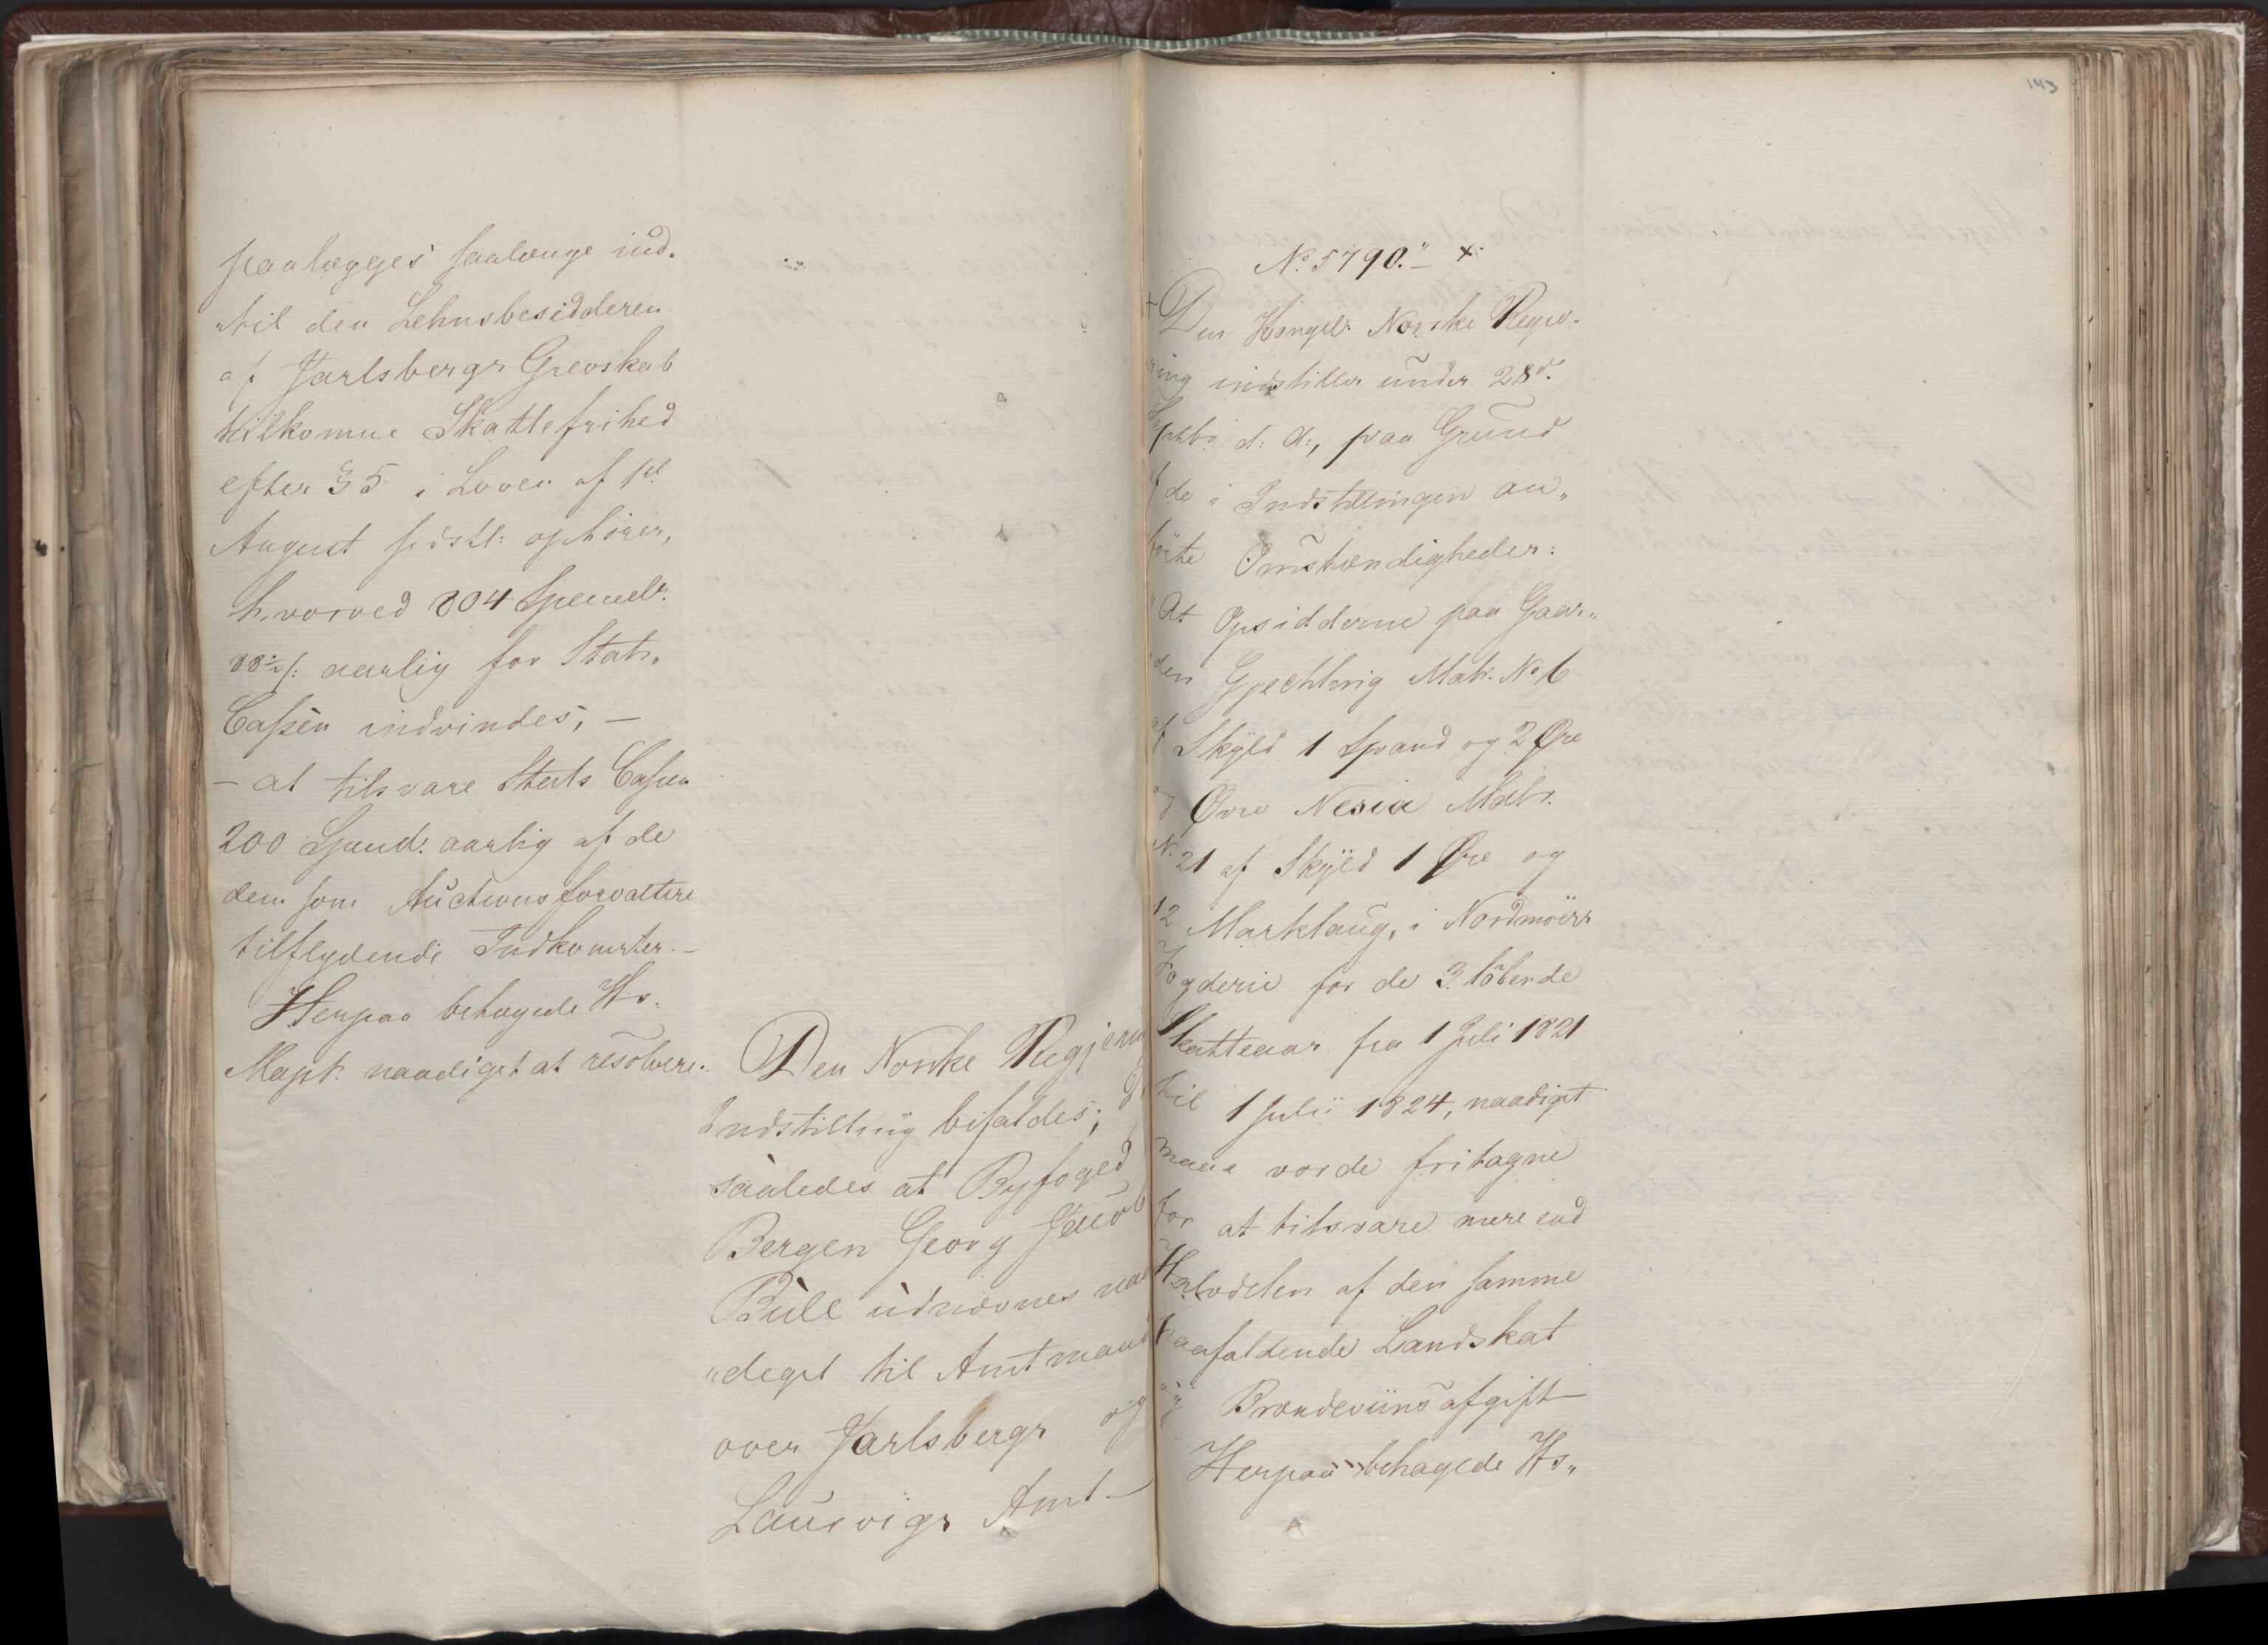 paalægges saalænge ind„
„til den Lehnsbesidderen
af Jarlsbergs Grevskab
tilkomne Skattefrihed
efter § 5 i Loven af 1st
August sidstl: ophörer,
hvorved 804 Speciedr.
88½ s: aarlig for Stats„
Cassen indvindes, —
— at tilsvare Stats Cassen
200 Spend: aarlig af de
dem som Auctionsforvaltere
tilflydende Indkomster. —
Herpaa behagede Hs.
Majst. naadigst at resolvere.
Den Norske Regjering
Indstilling bifaldes;
saaledes at Byfoged
Bergen Georg Jacob
Bull udnævnes naa
„digst til Amtmand
over Jarlsbergs og
Laurvigs Amt —
143
No. 5790." — x
Den Kongel. Norske Regje„
ring indstiller under 28d.
Septbr d: A:, paa Grund
af de i Indstillingen an„
förte Omstændigheder:
"At Opsidderne paa Gaar„
den Gjechling Matr. No 6
af Skyld 1 Spand og 2 Øre
og Øvre Nesia Matr.
No. 21 af Skyld 1 Øre og
12 Marklaug, i Nordmöers
Fogderie for de 3 löbende
Skatteaar fra 1 Juli 1821
til 1 Julii 1824, naadigst
maae vorde fritagne
for at tilsvare mere end
Halvdelen af den samme
paafaldende Landskat
og Brændeviinsafgift
Herpaa behagede Hs„